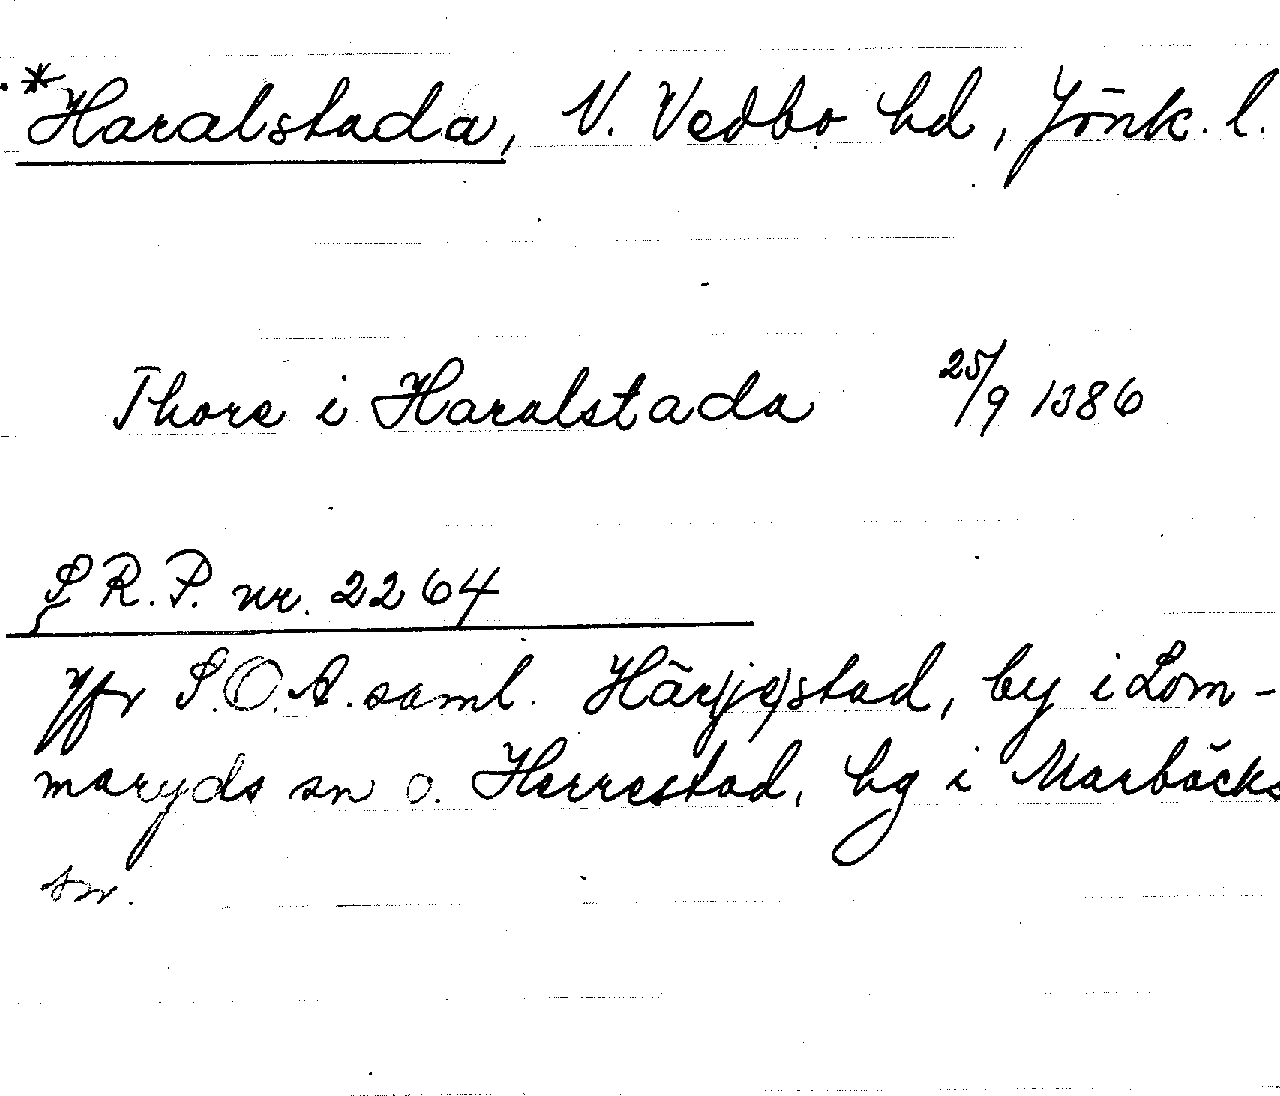 *Haralstada, N. Vedbo hd, Jönk. l.
Thore i Haralstada 25/9 1386
S R.P. nr. 2264
Jfr S.O.A. saml. Här(je)stad, by i Lom-
maryds sn o. Herrestad, hg i Marbäcks
sn.